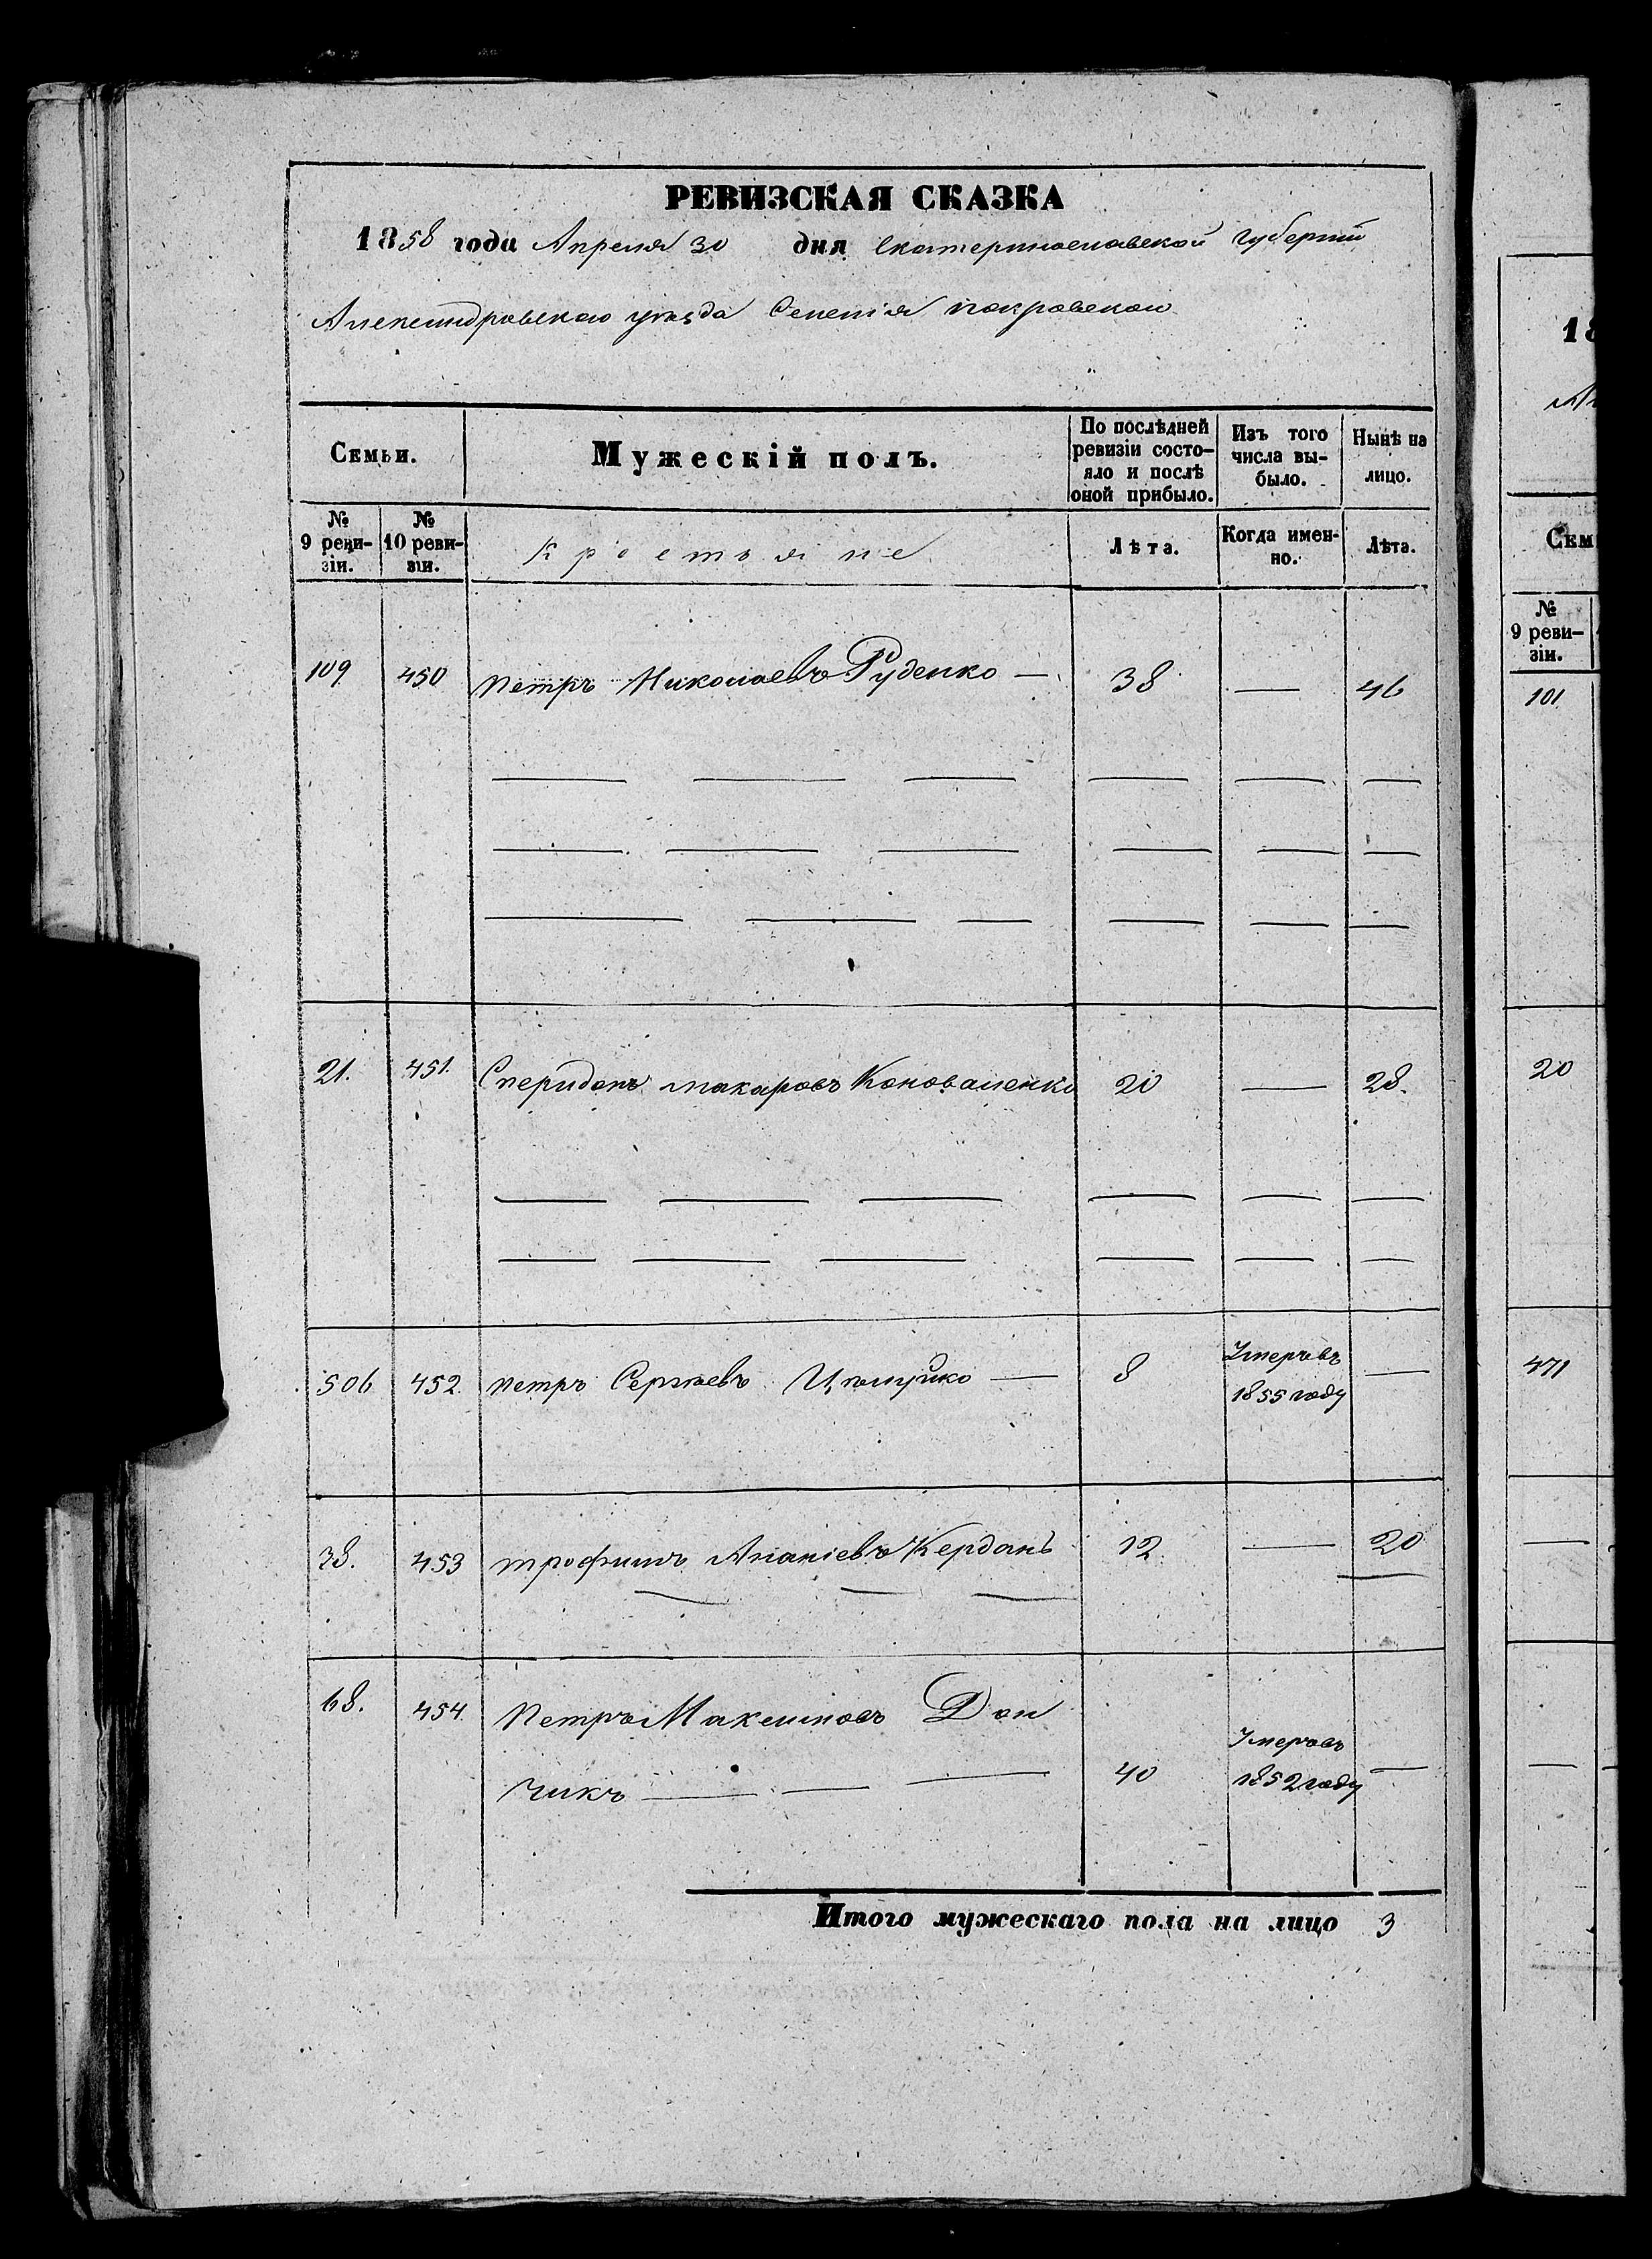 РЕВИЗСКАЯ СКАЗКА
1858 года Апреля 30 дня Екатеринославской Губерніи
Александровскаго уѣзда Селенія покровскаго
Семьи.
Мужескій полъ.
По послѣдней ревизіи состояло и послѣ оной прибыло.
Изъ того числа выбыло.
Нынѣ на лицо.
№ 9 ревизіи.
№ 10 ревизіи.
Крестьяне
Лѣта.
Когда именно.
Лѣта.
109 450 Петръ Николаевъ Руденко — 38 — 46
21. 451. Спиридонъ макаровъ Коноваленко 20 — 28.
506 452. петръ Сергѣевъ — 8 Умеръ въ 1855 году —
38. 453 трофимъ Ананіевъ Кердань 12. — 20
68. 454. Петръ Максимовъ Дон
чикъ — — — 40 Умеръ въ 1852 году —
Итого мужескаго пола на лицо 3
18
Сем
№ 9 ревизіи.
101
20
471